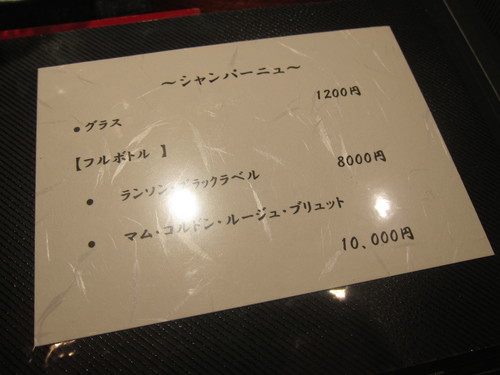 ～シャンパーニュ～
●グラス 1200円
【フルボトル 】
● ランソン・ブラックラベル 8000円
● マム・コルドン・ルージュ・ブリュット
10,000円